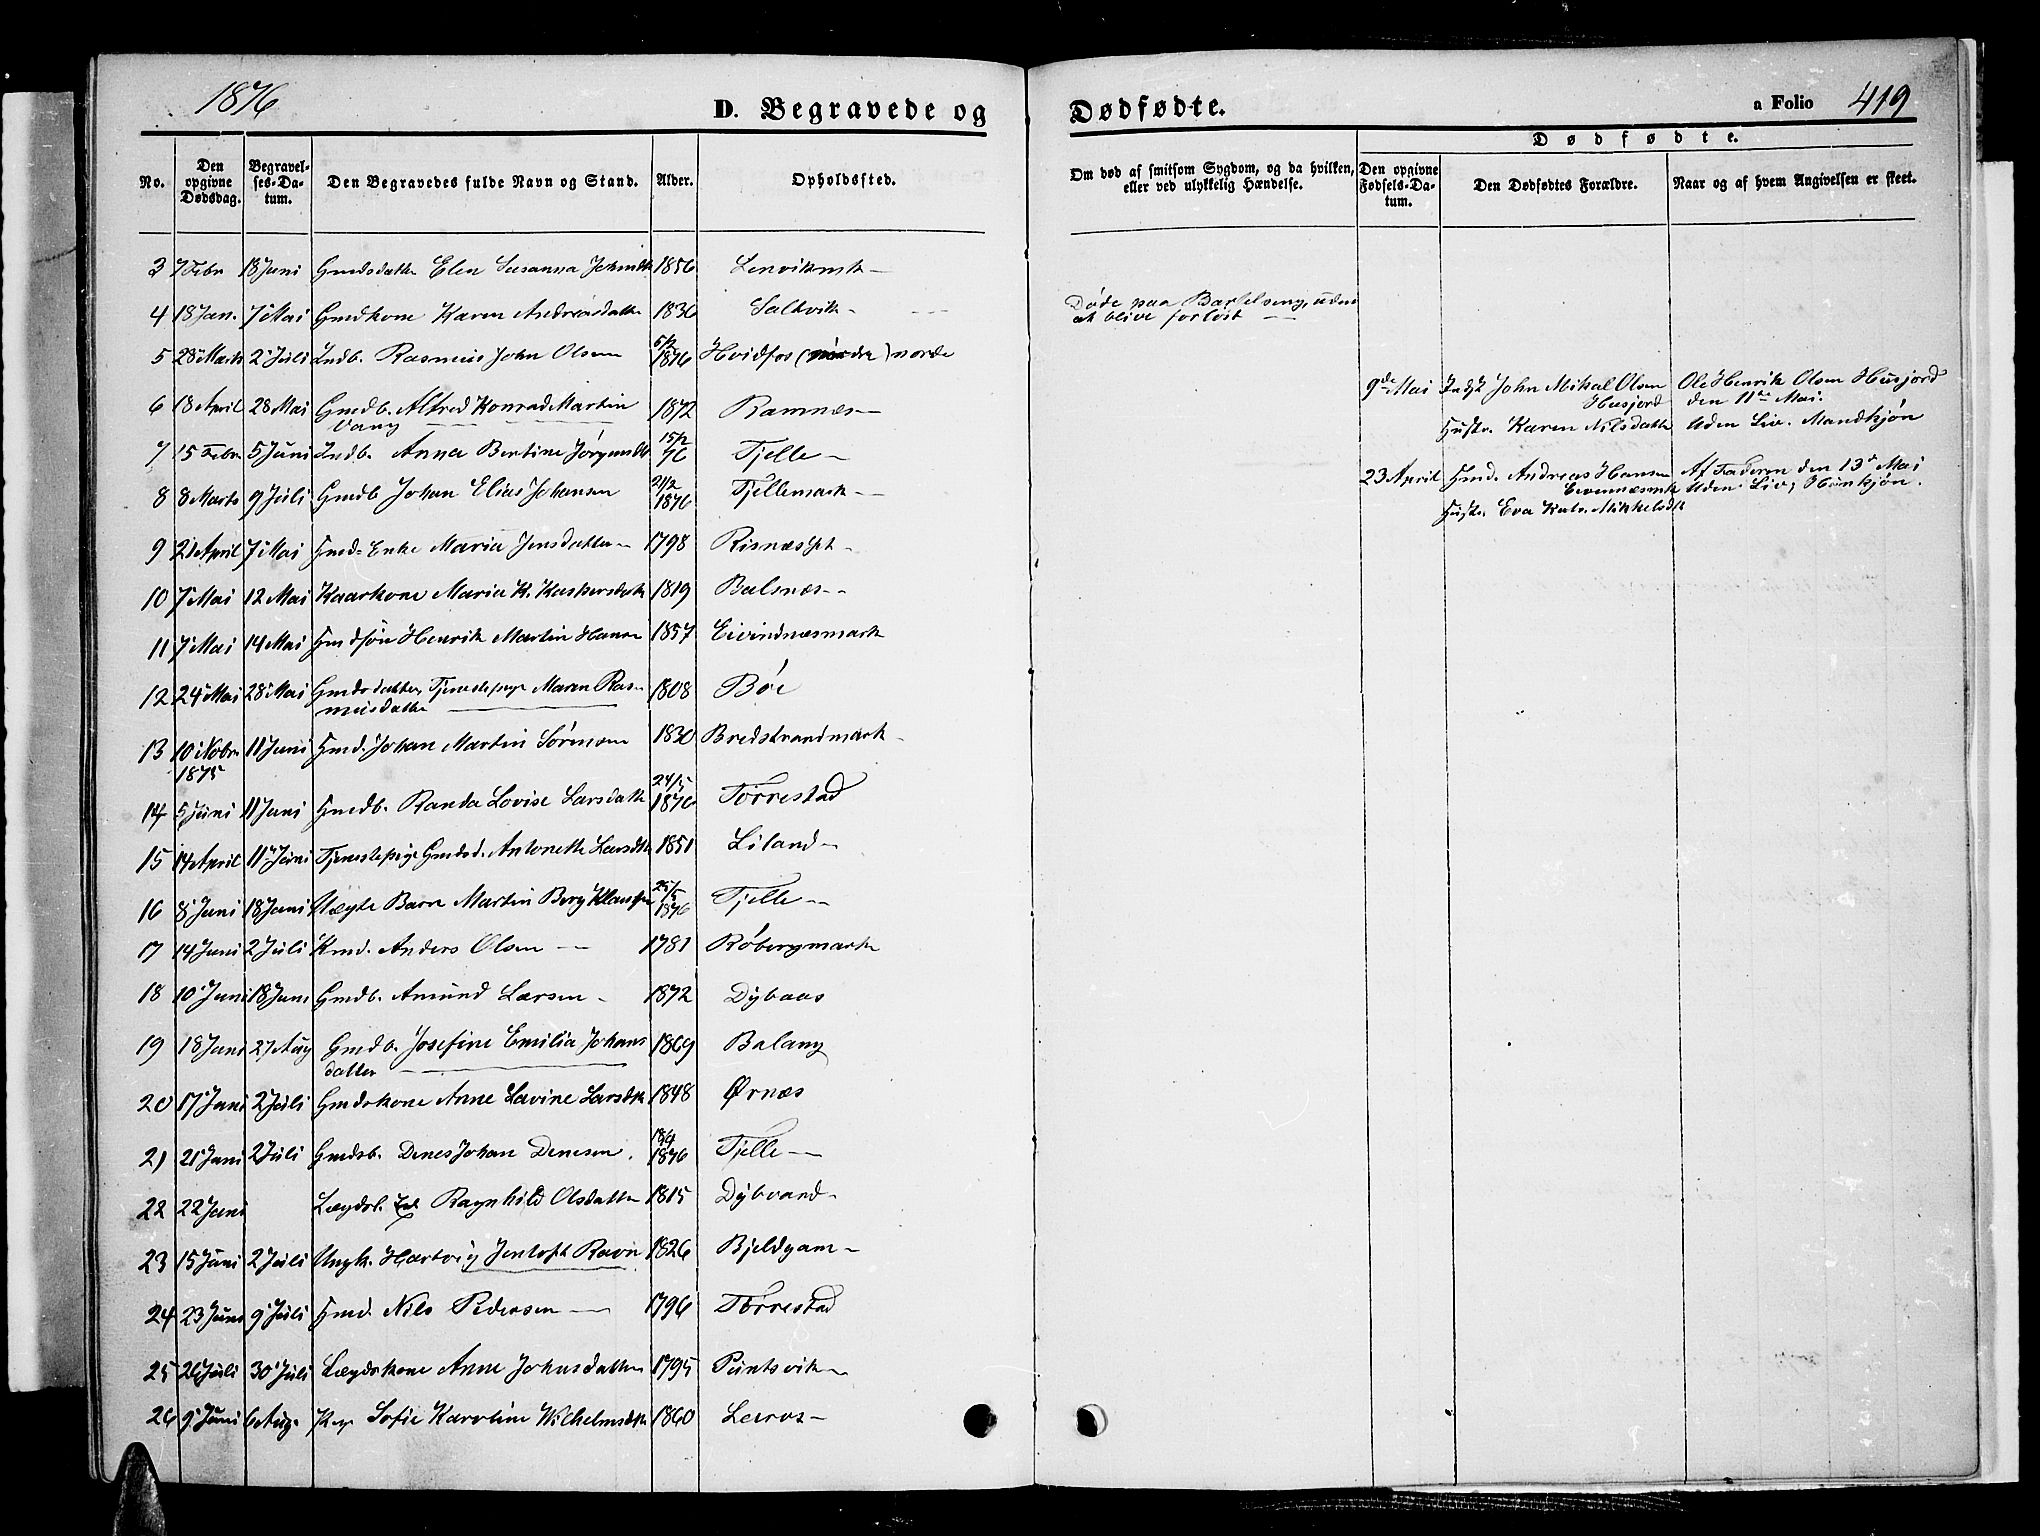 1876
D. Begravede og
Dødfødte.
a Folio 419
No.
Den opgivne Dødsdag.
Begravel-ses-Da-tum.
Den Begravedes fulde Navn og Stand.
Alder.
Opholdssted.
Om død af smitsom Sygdom, og da hvilken, eller ved ulykkelig Hændelse.
Dødfødte.
Den opgivne Fødsels-Da-tum.
Den Dødfødtes Forældre.
Naar og af hvem Angivelsen er skeet.
3 7 Febr 18 Juni Gmdsdatter Elen Susanna 1856
4 18 Jan. 7 Mai Gmdkone Karen Andreasdatter 1836 Saltvik
Døde paa Barselseng, uden
at blive forløst
5 28 Marts 2 Juli Indb. Rasmus John Olsen 6/2 1876 Hvidfos ( ) nordre
9de Mai Inds John Mikal Olsen Husjord
Hustr. Karen Nilsdatter
Ole Henrik Olsen Husjord
den 11te Mai.
Uden Liv. Mandkjøn
6 18 April 28 Mai Gmdb. Alfred Konrad Martin 1872 Ramnæs
Vang
7 15 Febr 5 Juni Indb. Anna Bertine Jørgensdtr 15/2 76 Tjelle
23 April Gmd. Andreas Hansen
Eivennæsmk
Hustr. Eva Katr. Mikkelsdtr
Af Faderen den 13de Mai
Uden Liv, Hunkjøn.
8 8 Marts 9 Juli Gmdb Johan Elias Johansen 21/2 1876 Tjellemark
9 21 April 7 Mai Gmd. Enke Maria Jensdatter 1798
10 7 Mai 12 Mai Kaarkone Maria K. Kaspersdatter 1819 Balsnæs
11 7 Mai 14 Mai Gmdsøn Henrik Martin Hansen 1857 Eivindnæsmark
12 24 Mai 28 Mai Gmdsdatter, Tjenestepige Maren Ras-
musdatter 1808 Bøe
13 10 Nobr. 1875 11 Juni Gmd. Johan Martin Sørensen 1830 Bredstrandmark
14 5 Juni 11 Juni Gmdb. Randa Lovise Larsdatter 24/5 1876 Torrestad
15 14 April 11 Juni Tjenestepige Gmdsd. Antonette Larsdtr 1851 Liland
16 8 Juni 18 Juni Uægte Barn Martin Berg Klausen 25/5 1876 Tjelle
17 14 Juni 2 Juli Kmd. Anders Olsen 1781 Røbergmark
18 10 Juni 18 Juni Gmdb. Amund Larsen 1872 Dybaas
19 18 Juni 27 Aug Gmdb. Josefine Emilia Johans
datter 1869 Balang
20 17 Juni 2 Juli Gmdskone Anne Lavine Larsdtr 1848 Ørnæs
21 21 Juni 2 Juli Gmdsb. Denes Johan Denesen 18/4 1876 Tjelle
22 22 Juni Lægdsl. Enk Ragnhild Olsdatter 1815 Dybvand
23 15 Juni 2 Juli Ungk. Hartvig Jentoft Ravn 1826 Bjeldgam
24 23 Juni 9 Juli Gmd. Nils Pedersen 1796 Torrestad
25 26 Juli 30 Juli Lægdskone Anne Johnsdatter 1795 Puntsvik
26 9 Juni 6 Aug. Sofie Karoline Wilhelmsdtr 1860